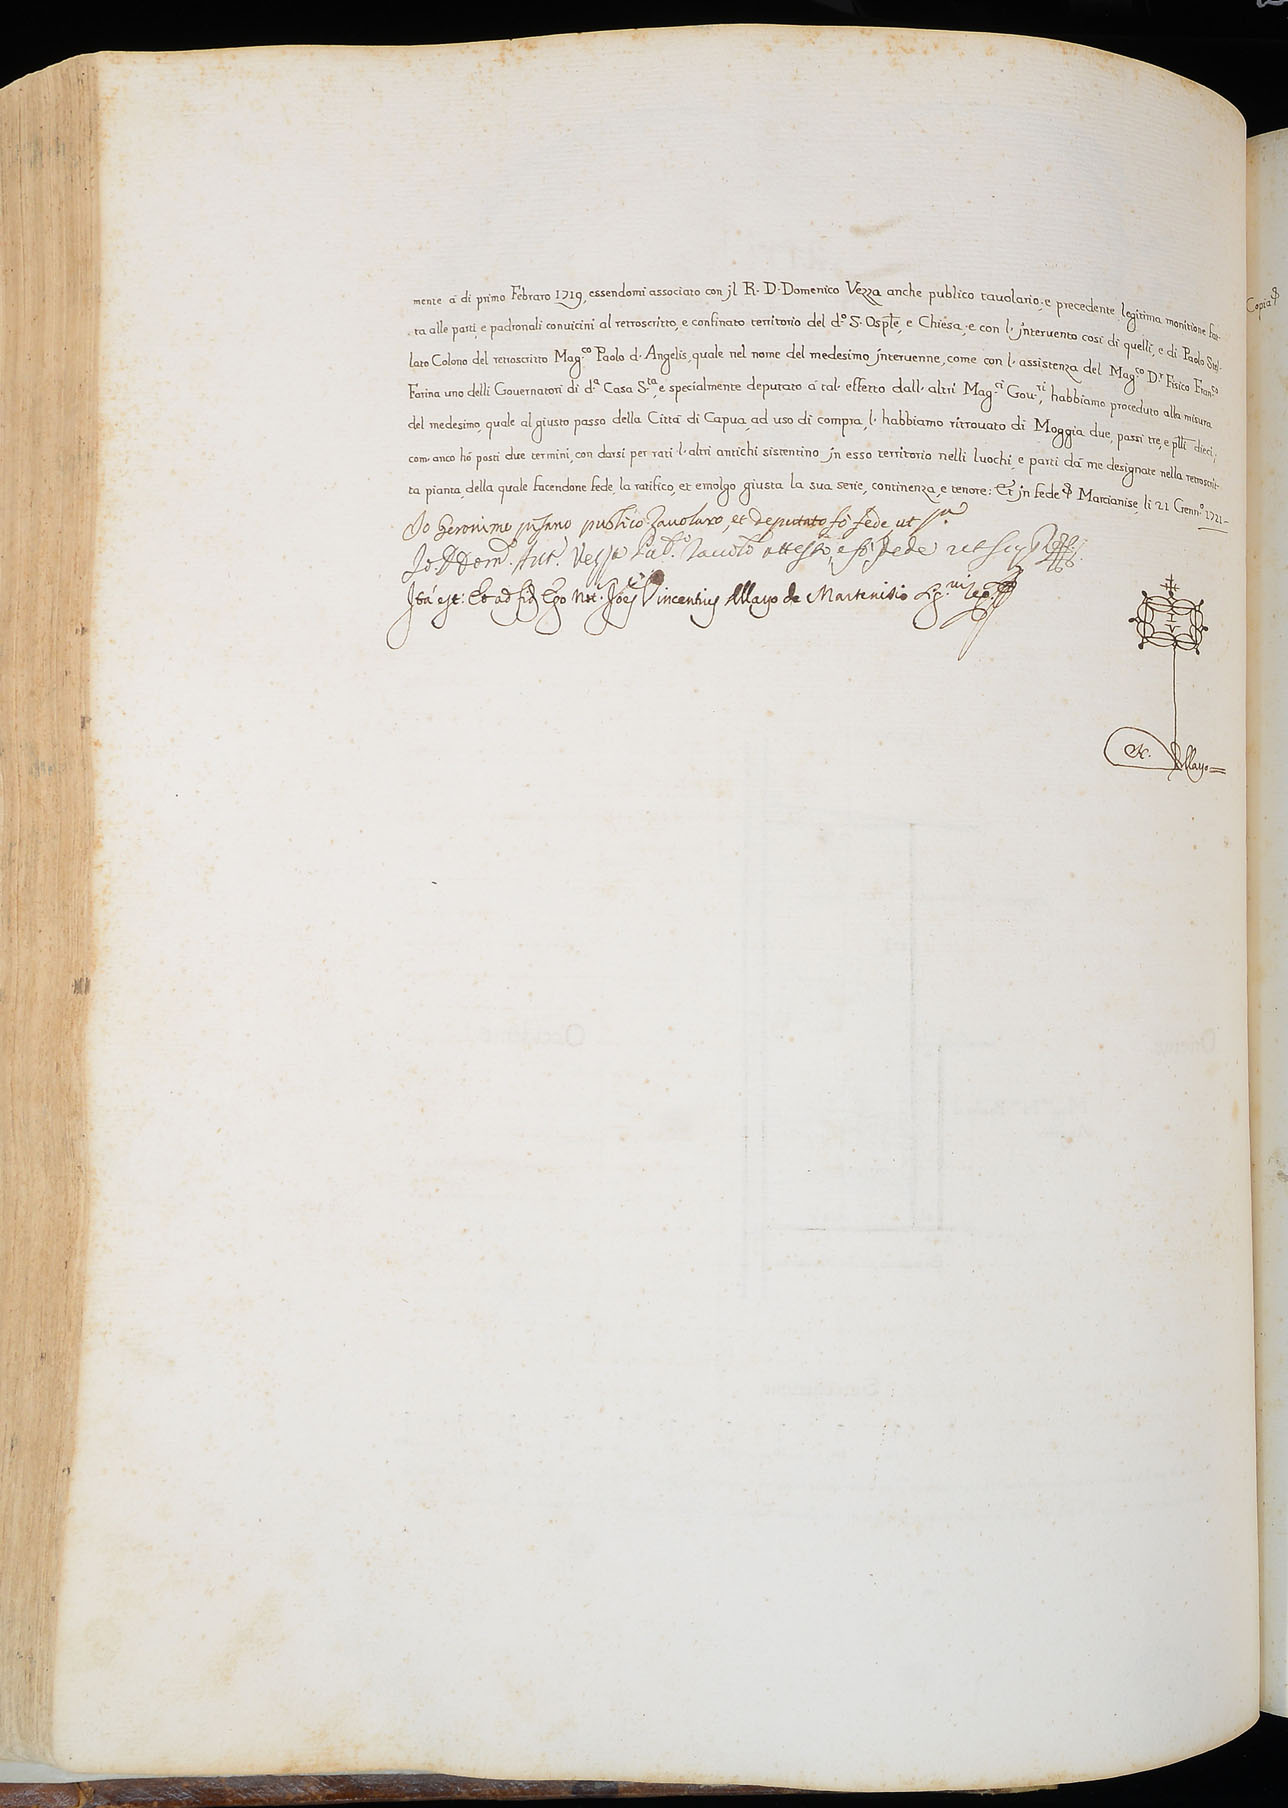 mente à di primo Febraro 1719, essendomi associato con jl R. D. Domenico Vezza anche publico tauolario, e precedente legitima monitione fat-
ta alle parti, e padronali conuicini al retroscritto, e confinato territorio del d.º S. Osple, e Chiesa, e con l. jnteruento così di quelli, e di Paolo Stel-
lato Colono del retroscritto Mag.co Paolo d. Angelis, quale nel nome del medesimo jnteruenne, come con l. assistenza del Mag.co D.r Fisico Fran.co
Farina uno delli Gouernatori di d.a Casa S.ta, e specialmente deputato à tal. effetto dall. altri Mag.ci Gou.ri, habbiamo proceduto alla misura
del medesimo, quale al giusto passo della Città di Capua ad uso di compra, l. habbiamo ritrouato di Moggia due, passi tre, e plli dieci,
com. anco hò posti due termini, con darsi per rati l. altri antichi sistentino jn esso territorio nelli luochi, e parti dà me designate nella retroscrit-
ta pianta, della quale facendone fede, la ratifico, et emolgo giusta la sua serie, continenza, e tenore: Et jn fede Marcianise, li 21 Genn.º 1721 -
Io Geronimo pisano publico Tauolaro, et deputato fò fede ut s.a
Io D. Dom.º Ant. Vezza Pub.º Tauol.º attesto, e fò fede ut sup.
Ità est: Et ad fid. Ego Not. Joes Vincentius Mayo de Martenisio
N. Mayo
Copia